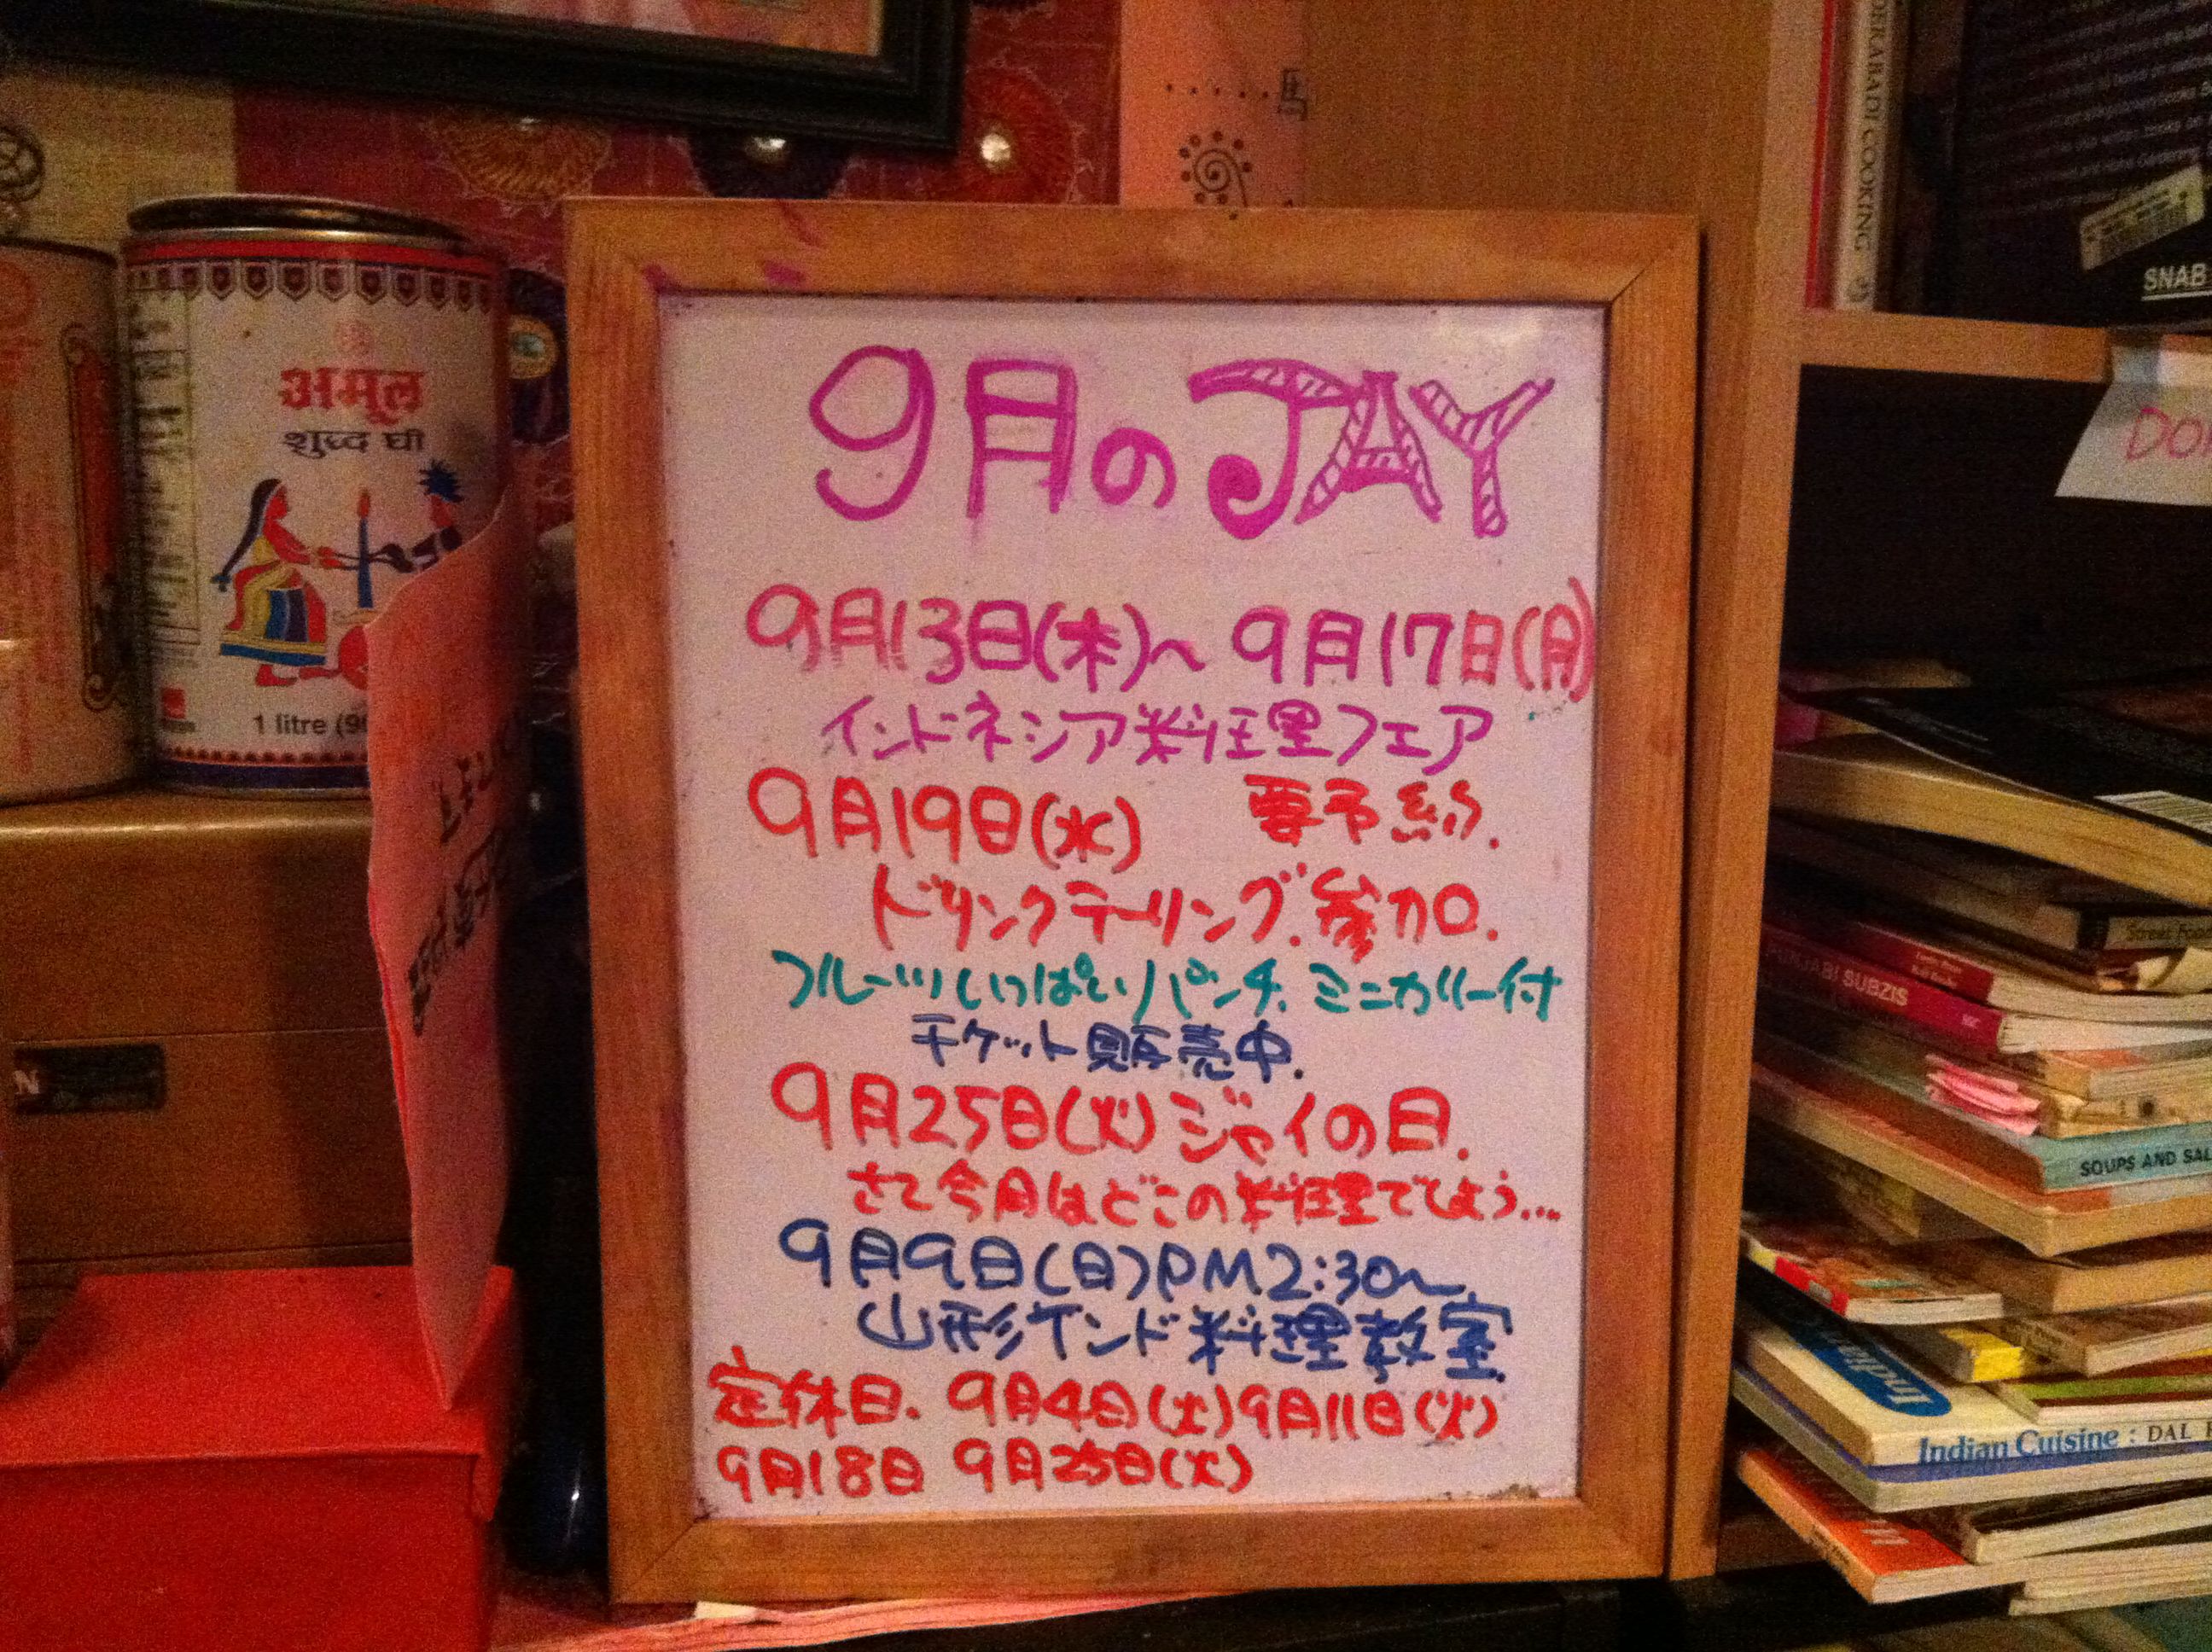 9月のJAY
9月13日(木)〜9月17日(月)
インドネシア料理フェア
9月19日(水) 要予約.
ドリンクテーリング.参加.
フルーツいっぱいパンチ.ミニカリー付
チケット販売中.
9月25日(火)ジャイの日.
さて今月はどこの料理でしょう...
9月9日(日)PM2:30〜
山形インド料理教室.
定休日.9月4日(火)9月11日(火)
9月18日 9月25日(火)
अमूल
शुद्ध घी
1 litre
馬
COOKING
SNAB
PUNJABI SUBZIS
SOUPS AND SAL
Indian Cuisine : DAL